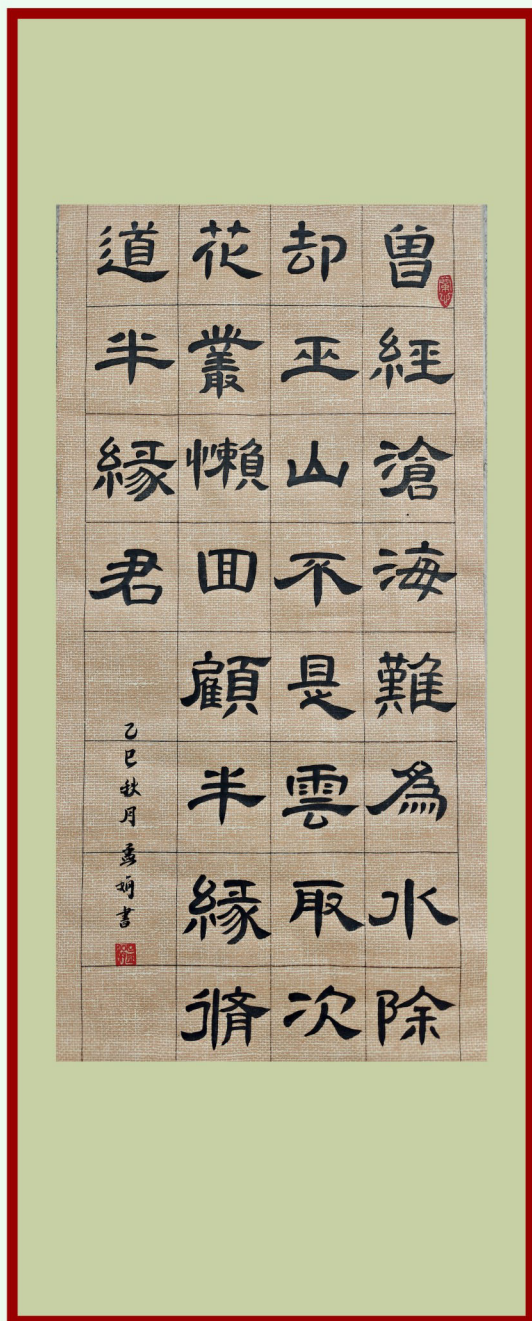 曾經滄海難為水除
却巫山不是雲取次
花叢懶回顧半緣脩
道半緣君
乙巳秋月孟娟書